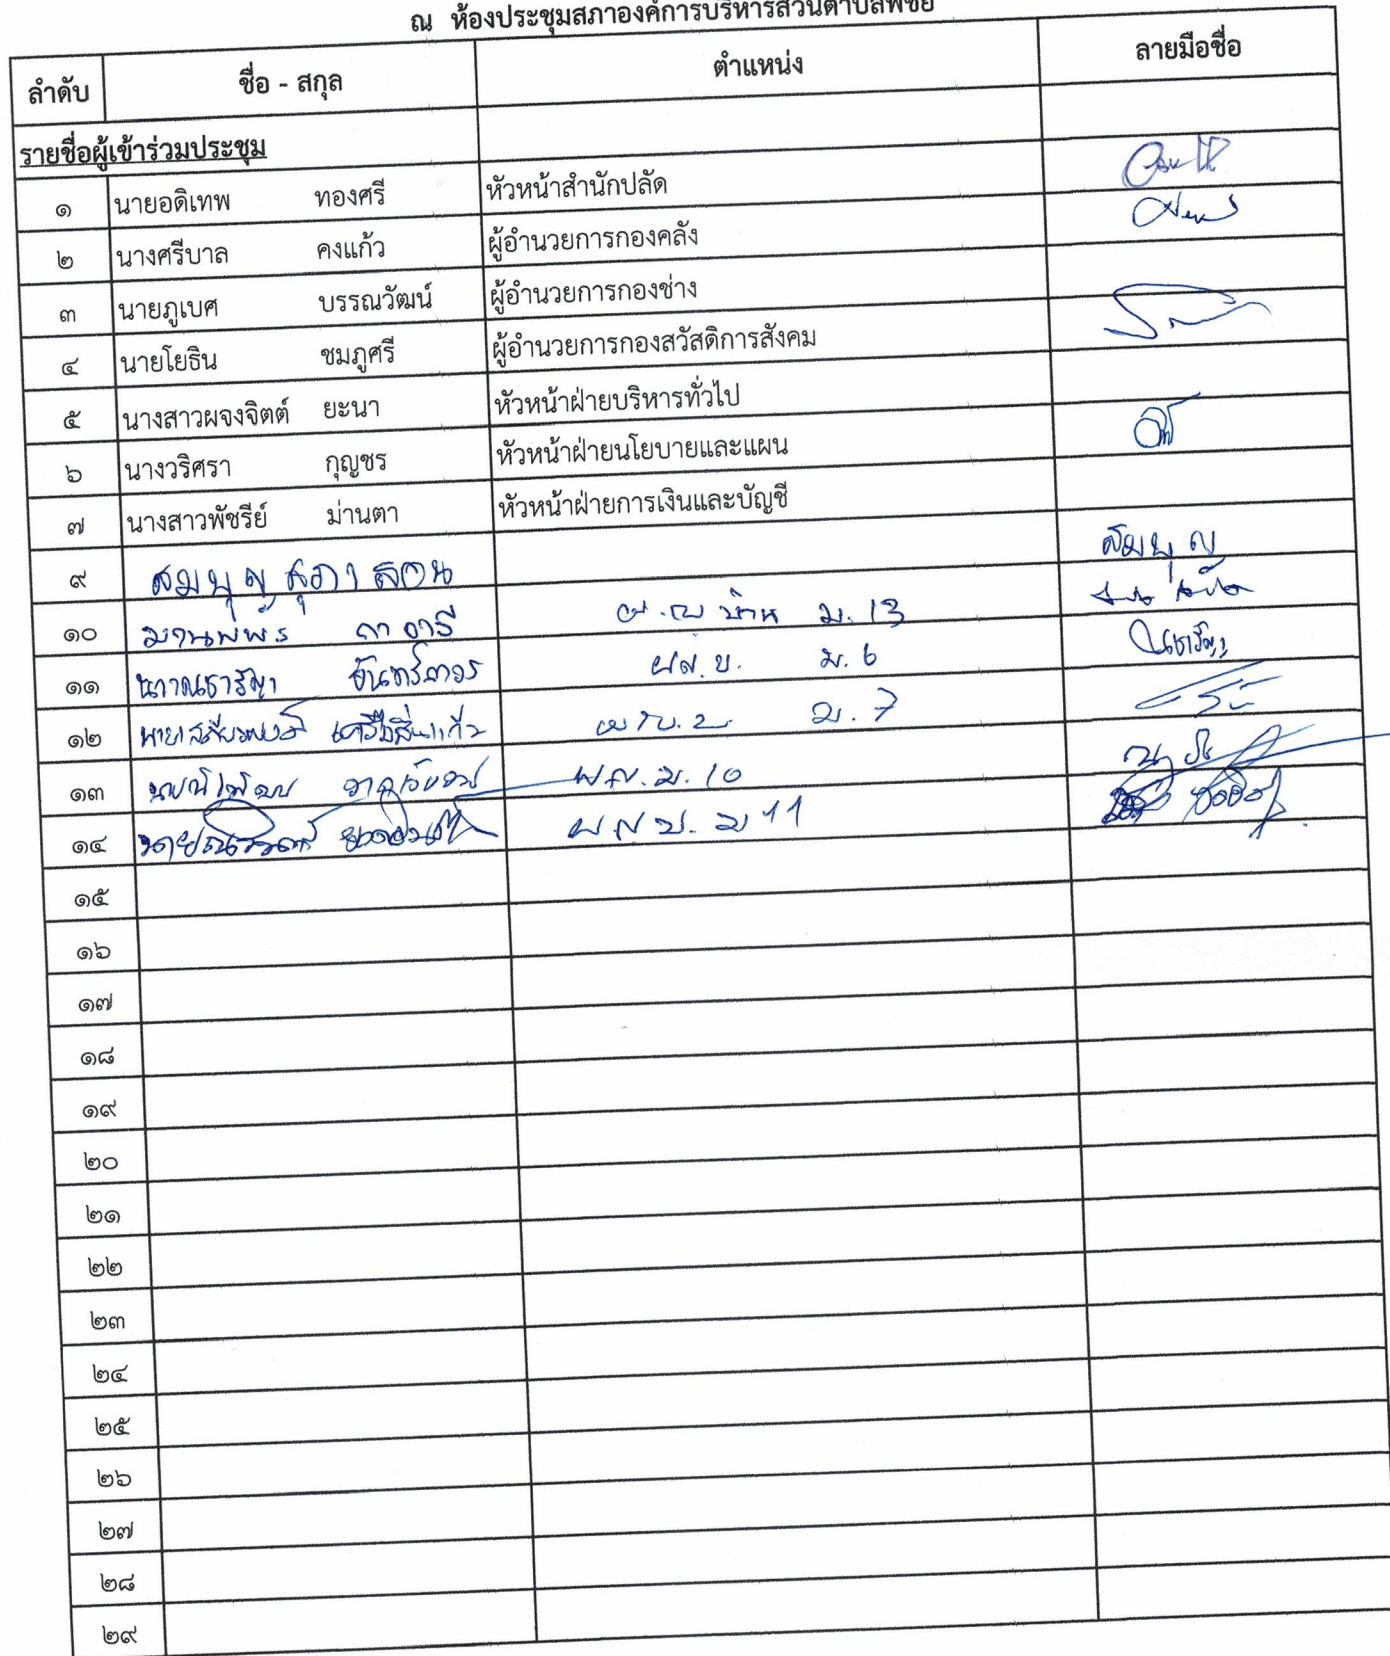 ณ ห้องประชุมสภาองค์การบริหารส่วนตำบลพิชัย
ลำดับ ชื่อ - สกุล ตำแหน่ง ลายมือชื่อ
รายชื่อผู้เข้าร่วมประชุม
๑ นายอดิเทพ ทองศรี หัวหน้าสำนักปลัด
๒ นางศรีบาล คงแก้ว ผู้อำนวยการกองคลัง
๓ นายภูเบศ บรรณวัฒน์ ผู้อำนวยการกองช่าง
๔ นายโยธิน ชมภูศรี ผู้อำนวยการกองสวัสดิการสังคม
๕ นางสาวผจงจิตต์ ยะนา หัวหน้าฝ่ายบริหารทั่วไป
๖ นางวริศรา กุญชร หัวหน้าฝ่ายนโยบายและแผน
๗ นางสาวพัชรีย์ ม่านตา หัวหน้าฝ่ายการเงินและบัญชี
๙ สมบุญ สุภาสอน สมบุญ
๑๐ ม. 13
๑๑ ม. 6
๑๒ ม. 7
๑๓ ม. 10
๑๔ ม 11
๑๕
๑๖
๑๗
๑๘
๑๙
๒๐
๒๑
๒๒
๒๓
๒๔
๒๕
๒๖
๒๗
๒๘
๒๙